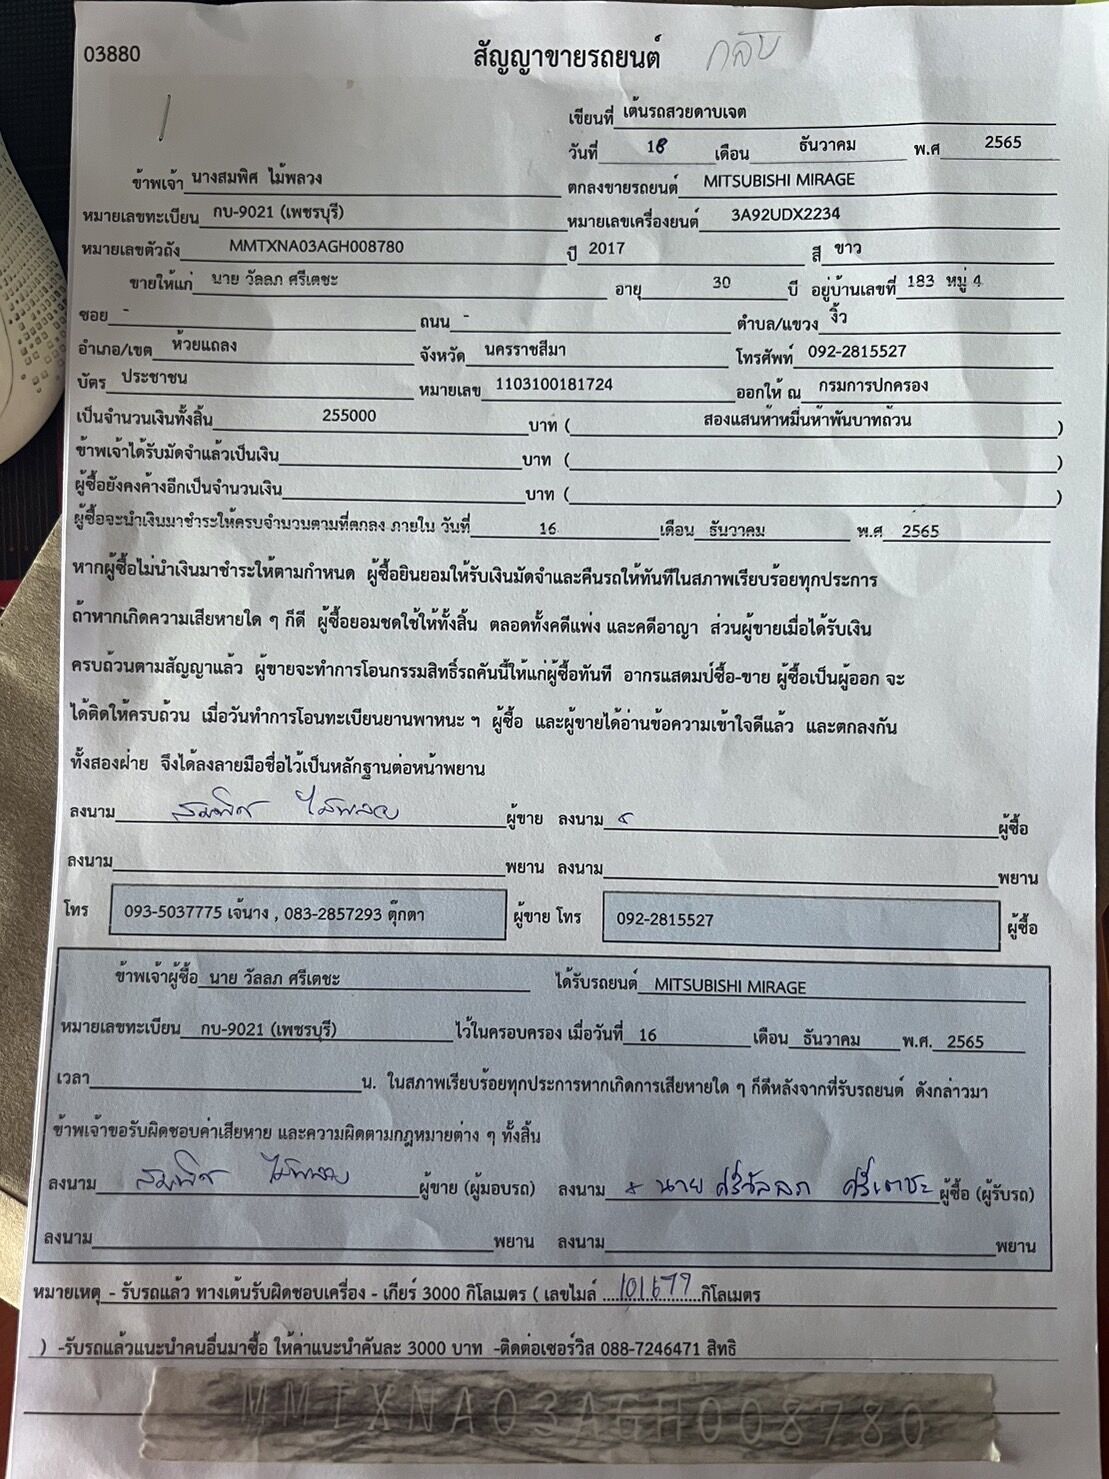 03880
สัญญาขายรถยนต์ กลับ
เขียนที่ เต้นรถสวยดาบเจต
วันที่ 18 เดือน ธันวาคม พ.ศ 2565
ข้าพเจ้า นางสมพิศ ไม้พลวง ตกลงขายรถยนต์ MITSUBISHI MIRAGE
หมายเลขทะเบียน กบ-9021 (เพชรบุรี) หมายเลขเครื่องยนต์ 3A92UDX2234
หมายเลขตัวถัง MMTXNA03AGH008780 ปี 2017 สี ขาว
ขายให้แก่ นาย วัลลภ ศรีเตชะ อายุ 30 ปี อยู่บ้านเลขที่ 183 หมู่ 4
ซอย - ถนน - ตำบล/แขวง งิ้ว
อำเภอ/เขต ห้วยแถลง จังหวัด นครราชสีมา โทรศัพท์ 092-2815527
บัตร ประชาชน หมายเลข 1103100181724 ออกให้ ณ กรมการปกครอง
เป็นจำนวนเงินทั้งสิ้น 255000 บาท ( สองแสนห้าหมื่นห้าพันบาทถ้วน )
ข้าพเจ้าได้รับมัดจำแล้วเป็นเงิน บาท ( )
ผู้ซื้อยังคงค้างอีกเป็นจำนวนเงิน บาท ( )
ผู้ซื้อจะนำเงินมาชำระให้ครบจำนวนตามที่ตกลง ภายใน วันที่ 16 เดือน ธันวาคม พ.ศ 2565
หากผู้ซื้อไม่นำเงินมาชำระให้ตามกำหนด ผู้ซื้อยินยอมให้รับเงินมัดจำและคืนรถให้ทันทีในสภาพเรียบร้อยทุกประการ
ถ้าหากเกิดความเสียหายใด ๆ ก็ดี ผู้ซื้อยอมชดใช้ให้ทั้งสิ้น ตลอดทั้งคดีแพ่ง และคดีอาญา ส่วนผู้ขายเมื่อได้รับเงิน
ครบถ้วนตามสัญญาแล้ว ผู้ขายจะทำการโอนกรรมสิทธิ์รถคันนี้ให้แก่ผู้ซื้อทันที อากรแสตมป์ซื้อ-ขาย ผู้ซื้อเป็นผู้ออก จะ
ได้ติดให้ครบถ้วน เมื่อวันทำการโอนทะเบียนยานพาหนะ ฯ ผู้ซื้อ และผู้ขายได้อ่านข้อความเข้าใจดีแล้ว และตกลงกัน
ทั้งสองฝ่าย จึงได้ลงลายมือชื่อไว้เป็นหลักฐานต่อหน้าพยาน
ลงนาม สมพิศ ไม้พลวง ผู้ขาย ลงนาม ผู้ซื้อ
ลงนาม พยาน ลงนาม พยาน
โทร 093-5037775 เจ้นาง , 083-2857293 ตุ๊กตา ผู้ขาย โทร 092-2815527 ผู้ซื้อ
ข้าพเจ้าผู้ซื้อ นาย วัลลภ ศรีเตชะ ได้รับรถยนต์ MITSUBISHI MIRAGE
หมายเลขทะเบียน กบ-9021 (เพชรบุรี) ไว้ในครอบครอง เมื่อวันที่ 16 เดือน ธันวาคม พ.ศ. 2565
เวลา น. ในสภาพเรียบร้อยทุกประการหากเกิดการเสียหายใด ๆ ก็ดีหลังจากที่รับรถยนต์ ดังกล่าวมา
ข้าพเจ้าขอรับผิดชอบค่าเสียหาย และความผิดตามกฎหมายต่าง ๆ ทั้งสิ้น
ลงนาม สมพิศ ไม้พลวง ผู้ขาย (ผู้มอบรถ) ลงนาม x นาย ศรีวัลลภ ศรีเตชะ ผู้ซื้อ (ผู้รับรถ)
ลงนาม พยาน ลงนาม พยาน
หมายเหตุ - รับรถแล้ว ทางเต้นรับผิดชอบเครื่อง - เกียร์ 3000 กิโลเมตร ( เลขไมล์ ...101677...กิโลเมตร
) -รับรถแล้วแนะนำคนอื่นมาซื้อ ให้ค่าแนะนำคันละ 3000 บาท -ติดต่อเซอร์วิส 088-7246471 สิทธิ
MMTXNA03AGH008780